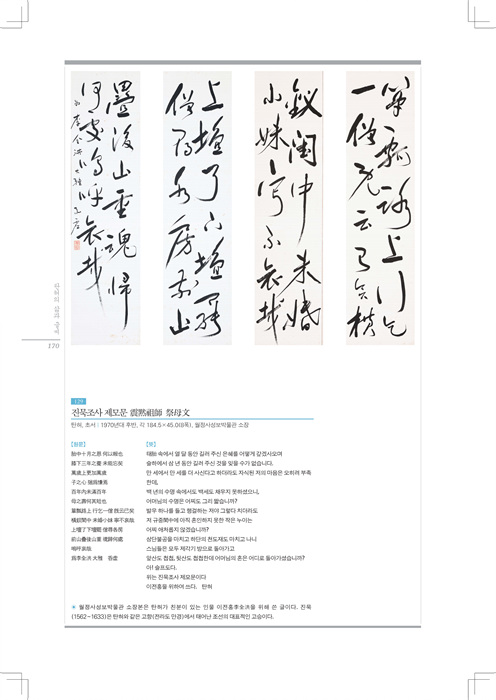 簞瓢路上行乞
一僧旣云已矣橫
釵閨中未婚
小妹寧不哀哉
上壇了下壇罷
僧尋各房前山
疊後山重魂歸
何處嗚呼哀哉
탄허의 삶과 글씨
170
129
진묵조사 제모문 震黙祖師 祭母文
탄허, 초서 : 1970년대 후반, 각 184.5×45.0(8폭), 월정사성보박물관 소장
[원문]
胎中十月之恩 何以報也
膝下三年之養 未能忘矣
萬歲上更加萬歲
子之心 猶爲嫌焉
百年內未滿百年
母之壽何其短也
簞瓢路上 行乞一僧 旣云已矣
橫釵閨中 未婚小妹 寧不哀哉
上壇了下壇罷 僧尋各房
前山疊後山重 魂歸何處
嗚呼哀哉
爲李金洪 大雅 呑虛
[역]
태胎 속에서 열 달 동안 길러 주신 은혜를 어떻게 갚겠사오며
슬하에서 삼 년 동안 길러 주신 것을 잊을 수가 없습니다.
만 세에서 만 세를 더 사신다고 하더라도 자식된 저의 마음은 오히려 부족
한데,
백 년의 수명 속에서도 백세도 채우지 못하셨으니,
어머님의 수명은 어찌도 그리 짧습니까?
발우 하나를 들고 걸립하는 저야 그렇다 치더라도
저 규중閨中에 아직 혼인하지 못한 작은 누이는
어찌 애처롭지 않겠습니까?
상단불공을 마치고 하단의 천도재도 마치고 나니
스님들은 모두 제각기 방으로 돌아가고
앞산도 첩첩, 뒷산도 첩첩한데 어머님의 혼은 어디로 돌아가셨습니까?
아! 슬프도다.
위는 진묵조사 제모문이다
이전홍을 위하여 쓰다. 탄허
※ 월정사성보박물관 소장본은 탄허가 친분이 있는 인물 이전홍李金洪을 위해 쓴 글이다. 진묵
(1562~1633)은 탄허와 같은 고향(전라도 만경)에서 태어난 조선의 대표적인 고승이다.